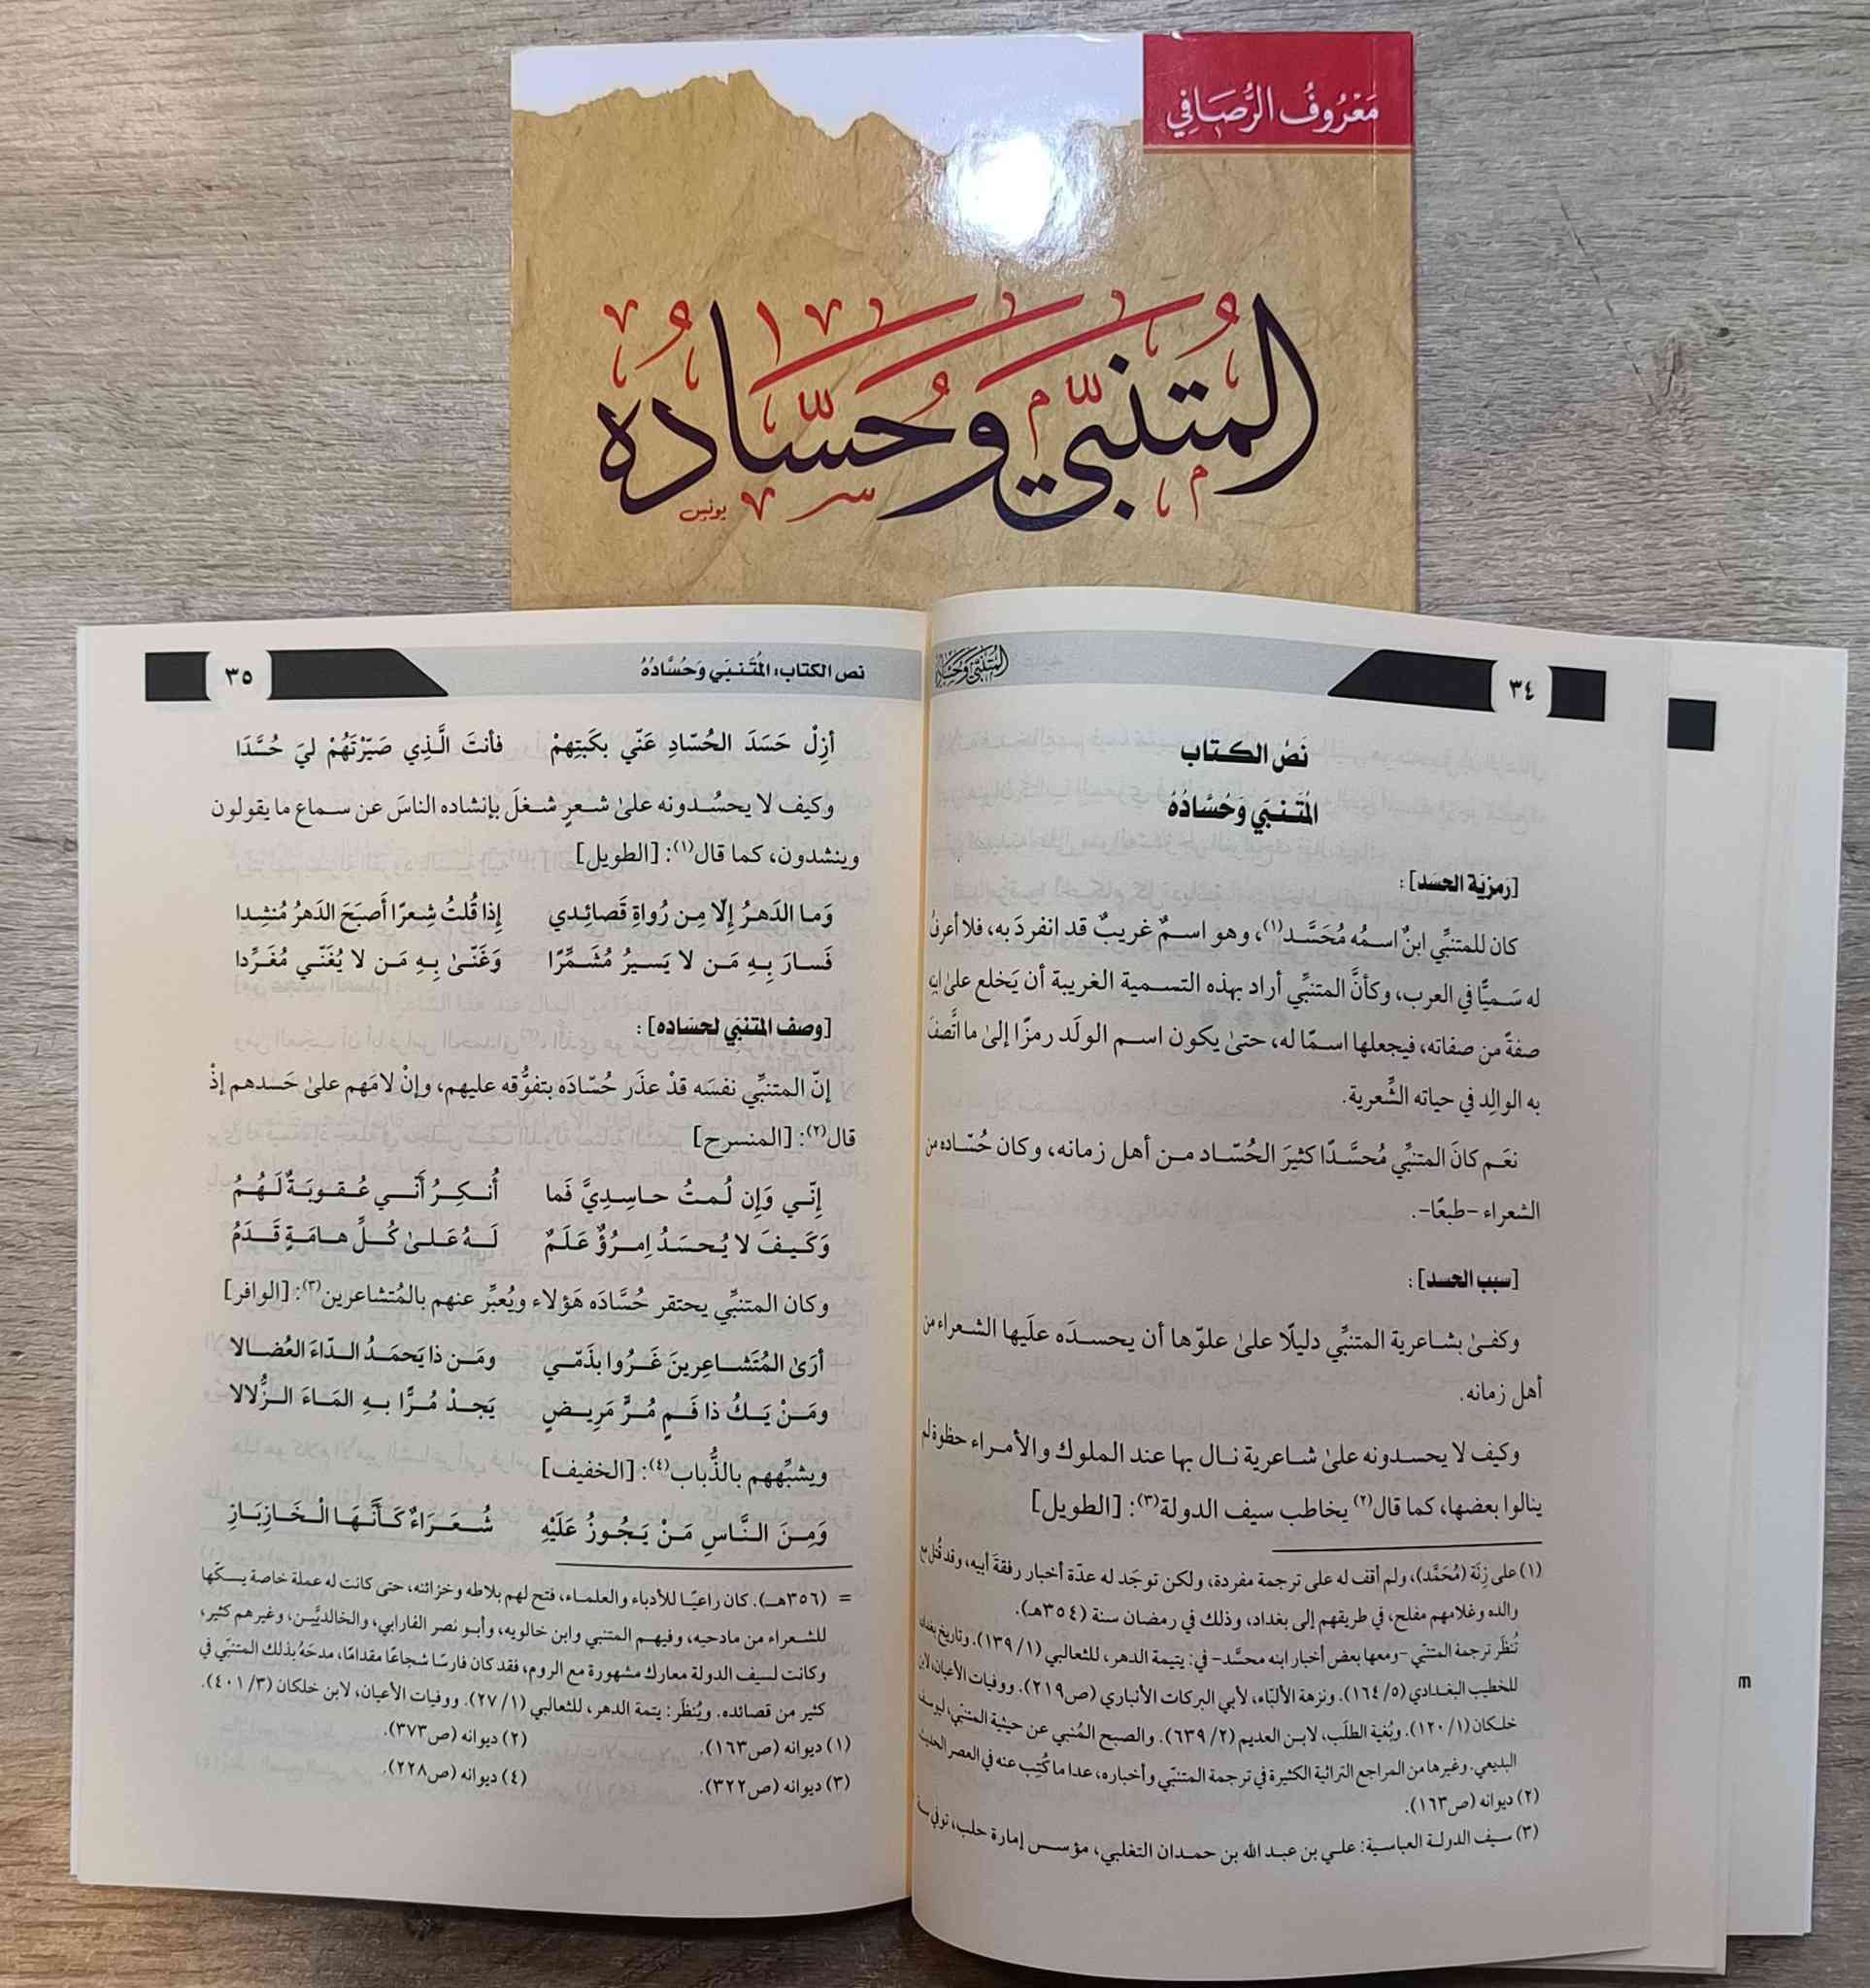 مَعْرُوفُ الرُّصَافِي
المُتنبّي وَحُسّادُه
يونس
٣٤
المُتنبّي وَحُسّادُه
نَصُ الكتاب
المُتَنبَي وَحُسَّادُهُ
[رَمزيَة الحسَد]:
كان للمتنبِّي ابنٌ اسمُه مُحَسَّد(١)، وهو اسمٌ غريبٌ قد انفردَ به، فلا أعرفُ
له سَميًّا في العرب، وكأنَّ المتنبِّي أراد بهذه التسمية الغريبة أن يَخلع علىٰ ابنِه
صفةً من صفاته، فيجعلها اسمًا له، حتىٰ يكون اسم الولَد رمزًا إلىٰ ما اتَّصفَ
به الوالِد في حياته الشِّعرية.
نعَم كانَ المتنبِّي مُحسَّدًا كثيرَ الحُسّاد من أهل زمانه، وكان حُسّاده من
الشعراء -طبعًا-.
[سبب الحسد]:
وكفىٰ بشاعرية المتنبِّي دليلًا علىٰ علوّها أن يحسدَه علَيها الشعراء من
أهل زمانه.
وكيف لا يحسدونه علىٰ شاعرية نال بها عند الملوك والأمراء حظوة لم
ينالوا بعضها، كما قال(٢) يخاطب سيف الدولة(٣): [الطويل]
(١) على زِنَة (مُحَمَّد)، ولم أقف له على ترجمة مفردة، ولكن توجَد له عدّة أخبار رفقةَ أبيه، وقد قُتل مع
والده وغلامهم مفلح، في طريقهم إلى بغداد، وذلك في رمضان سنة (٣٥٤هـ).
تُنظَر ترجمة المتنبّي -ومعها بعض أخبار ابنه محسَّد- في: يتيمة الدهر، للثعالبي (١/ ١٣٩). وتاريخ بغداد
للخطيب البغدادي (٥/ ١٦٤). ونزهة الألبّاء، لأبي البركات الأنباري (ص٢١٩). ووفيات الأعيان، لابن
خلكان (١/ ١٢٠). وبُغية الطلَب، لابن العديم (٢/ ٦٣٩). والصبح المُنبي عن حيثية المتنبّي، ليوسف
البديعي. وغيرها من المراجع التراثية الكثيرة في ترجمة المتنبّي وأخباره، عدا ما كُتِب عنه في العصر الحديث
(٢) ديوانه (ص١٦٣).
(٣) سيف الدولة العباسية: علي بن عبد الله بن حمدان التغلبي، مؤسس إمارة حلب، توفي سنة
نص الكتاب: المُتَنبَي وَحُسَّادُهُ
٣٥
أزِلْ حَسَدَ الحُسّادِ عَنّي بكَبتِهِمْ فأنتَ الَّذِي صَيّرْتَهُمْ ليَ حُسَّدَا
وكيف لا يحسُدونه علىٰ شعرٍ شغلَ بإنشاده الناسَ عن سماع ما يقولون
وينشدون، كما قال(١): [الطويل]
وَما الدَهرُ إِلّا مِن رُواةِ قَصائِدي إِذا قُلتُ شِعرًا أَصبَحَ الدَهرُ مُنشِدا
فَسارَ بِهِ مَن لا يَسيرُ مُشَمِّرًا وَغَنّىٰ بِهِ مَن لا يُغَنّي مُغَرِّدا
[وصف المتنبي لحساده]:
إنّ المتنبِّي نفسَه قدْ عذَر حُسّادَه بتفوُّقه عليهم، وإنْ لامَهم علىٰ حَسدهم إذْ
قال(٢): [المنسرح]
إِنّي وَإِن لُمتُ حاسِدِيَّ فَما أُنكِرُ أَنّي عُقوبَةٌ لَهُمُ
وَكَيفَ لا يُحسَدُ اِمرُؤٌ عَلَمٌ لَهُ عَلىٰ كُلِّ هامَةٍ قَدَمُ
وكان المتنبِّي يحتقر حُسَّادَه هَؤلاء ويُعبِّر عنهم بالمُتشاعرين(٣): [الوافر]
أرَىٰ المُتَشاعِرينَ غَرُوا بذَمّي ومَن ذا يَحمَدُ الدّاءَ العُضالا
ومَنْ يَكُ ذا فَمٍ مُرٍّ مَرِيضٍ يَجدْ مُرًّا بهِ المَاءَ الزُّلالا
ويشبِّههم بالذُّباب(٤): [الخفيف]
وَمِنَ النَّاسِ مَنْ يَجُوزُ عَلَيْهِ شُعَرَاءٌ كَأَنَّهَا الْخَازِبَازِ
= (٣٥٦هـ). كان راعيًا للأدباء والعلماء، فتح لهم بلاطه وخزائنه، حتى كانت له عملة خاصة يسكّها
للشعراء من مادحيه، وفيهم المتنبي وابن خالويه، وأبو نصر الفارابي، والخالديَّين، وغيرهم كثير،
وكانت لسيف الدولة معارك مشهورة مع الروم، فقد كان فارسًا شجاعًا مقدامًا، مدحَهُ بذلك المتنبّي في
كثير من قصائده. ويُنظَر: يتمة الدهر، للثعالبي (١/ ٢٧). ووفيات الأعيان، لابن خلكان (٣/ ٤٠١).
(١) ديوانه (ص١٦٣). (٢) ديوانه (ص٣٧٣).
(٣) ديوانه (ص٣٢٢). (٤) ديوانه (ص٢٢٨).